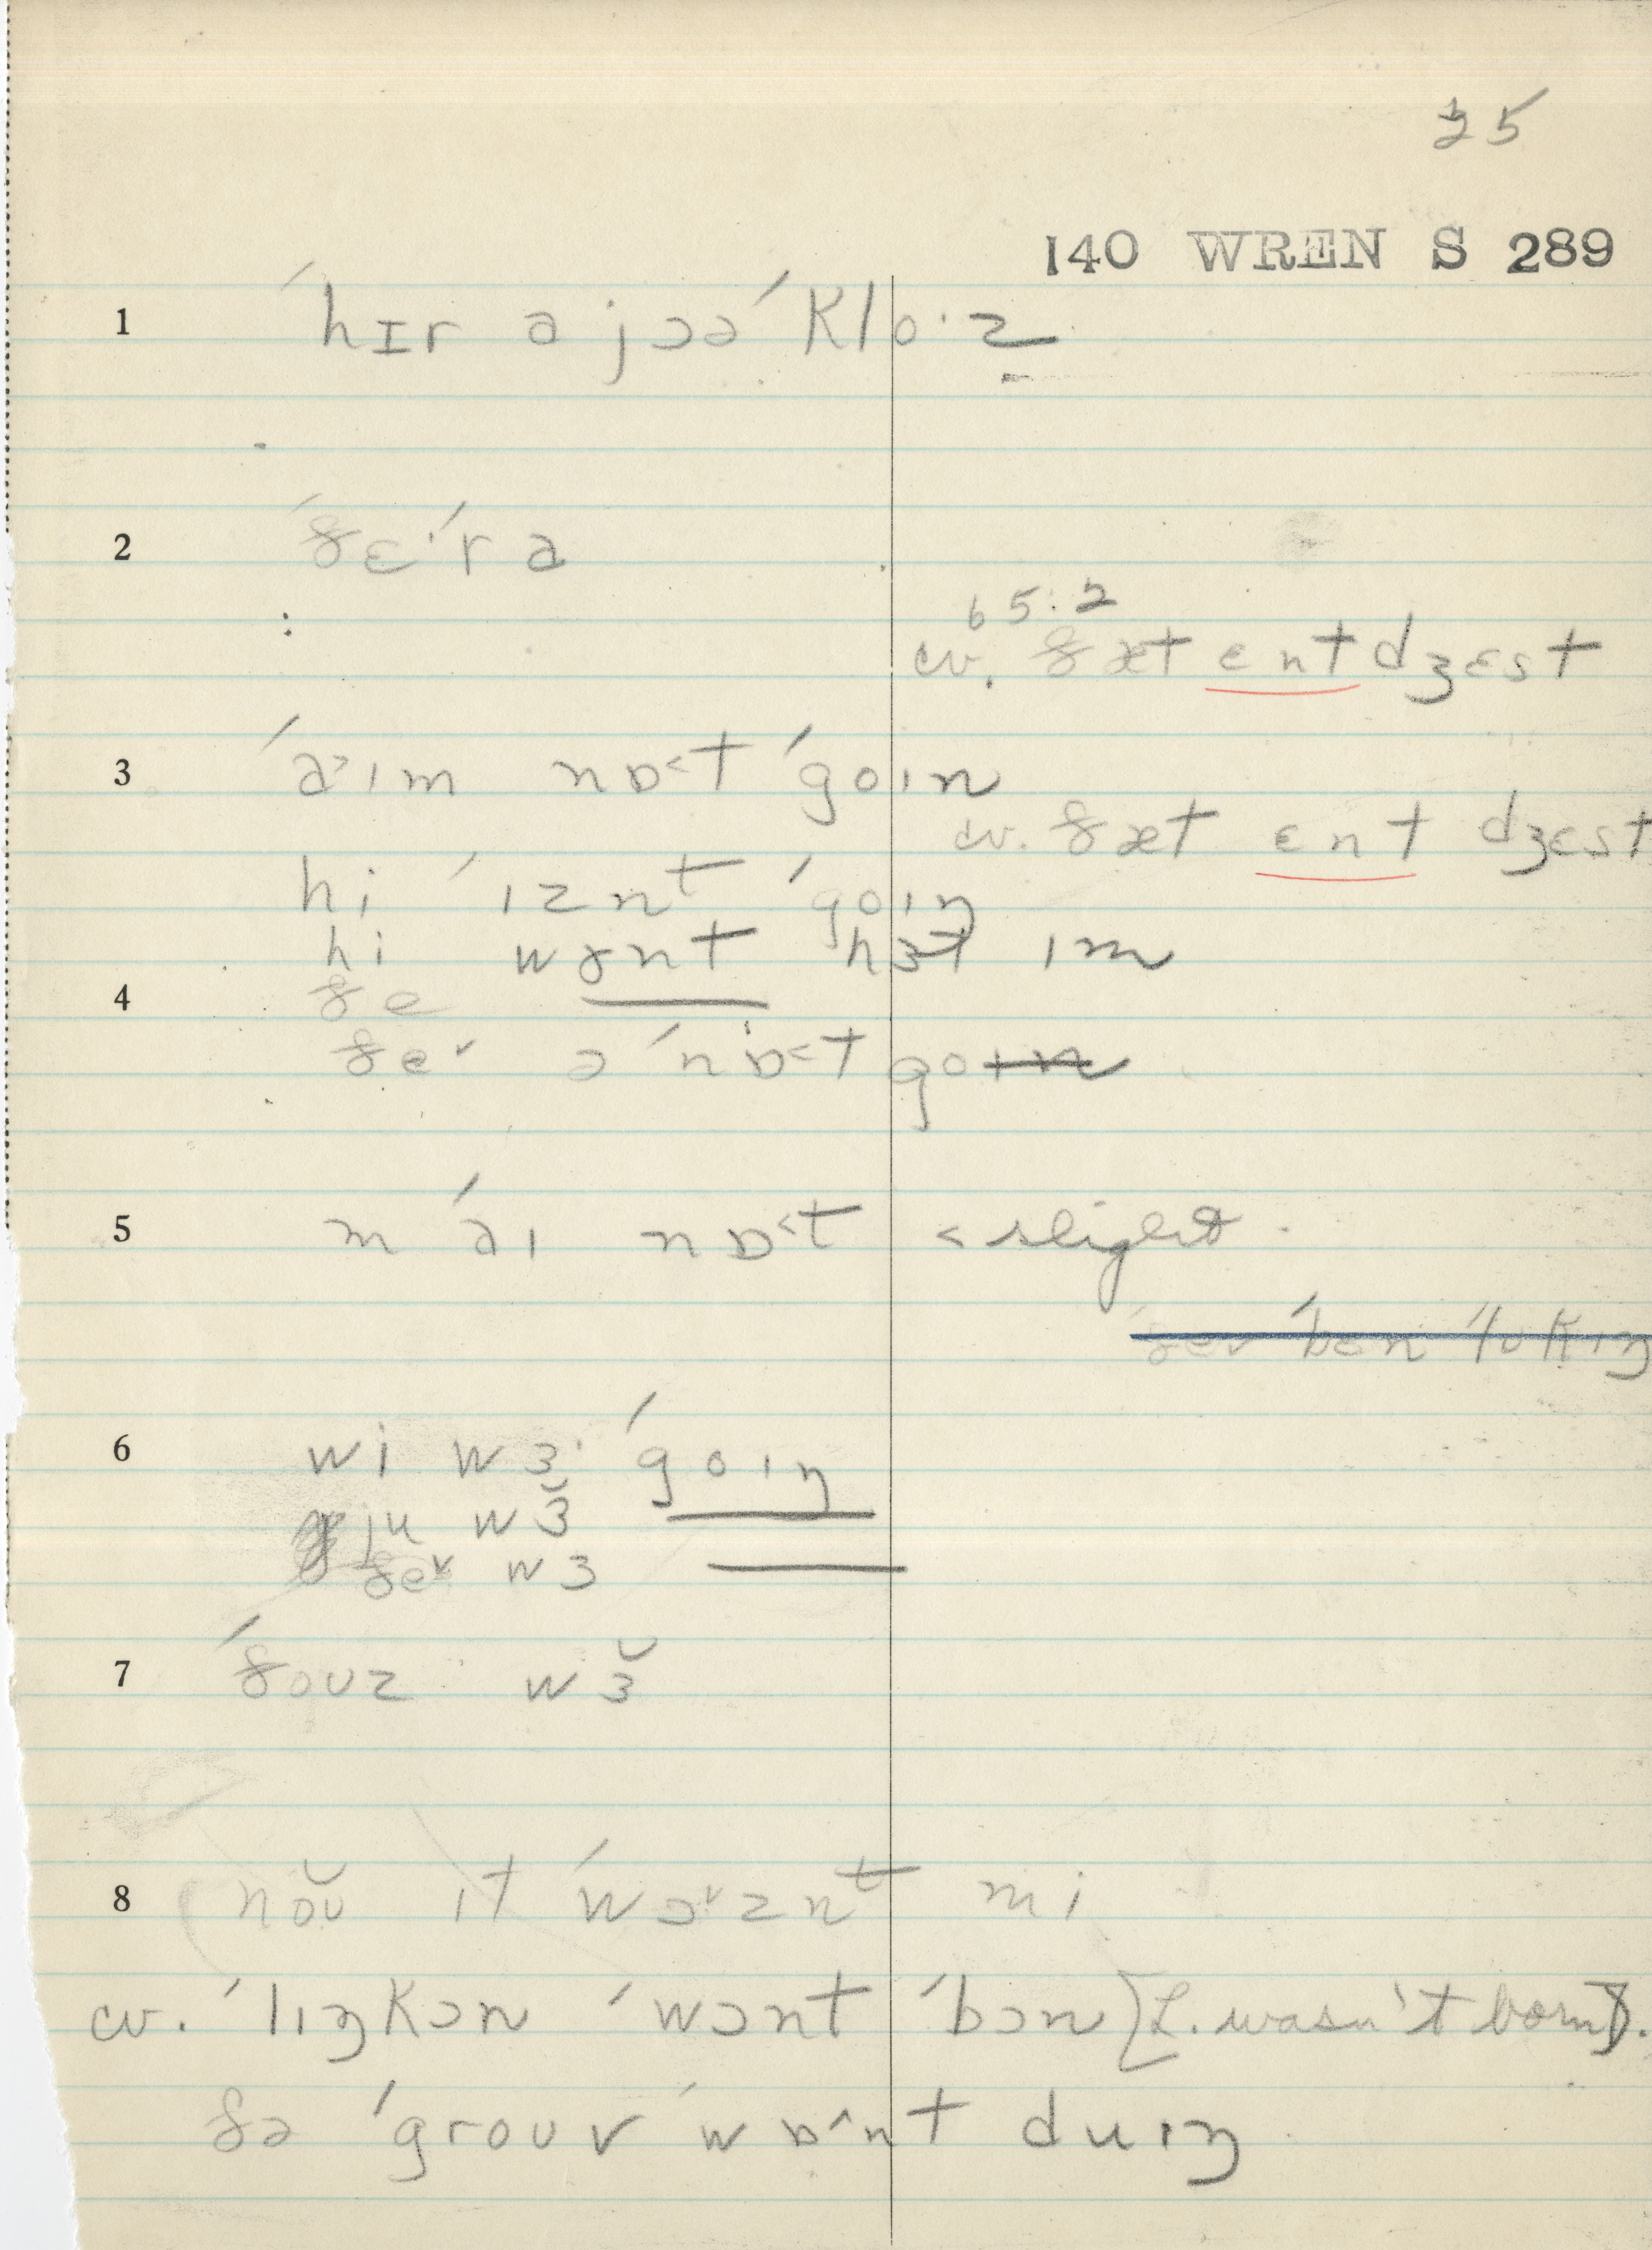 25
140 WREN S 289
1 ˈhɪr ə jɔəˈklo·z
2 ˈðɛˈr ə
65:2
cv. ðæt ent dʒɛst
3 ˈa˃ɪm nɒ˂t ˈgoɪn
cv. ðæt ɛnt dʒɛst
hi ˈɪznt ˈgoɪŋ
hi wɤnt hɜt ɪm
4 ðe
ðe˅ ə ˈnɒ˂t go
5 m ˈaɪ nɒ˂t ˂ slight.
6 wi wɜ· ˈgoɪŋ
ju wɜ̆
ðe˅ wɜ
7 ˈðouz wɜ̆
8 nŏʊ ɪt ˈwɔ˅znt mi
cv. ˈlɪŋkən ˈwɔnt ˈbɔn [L. wasn't born].
ðə ˈgroʊv ˈwɒ˄nt duɪŋ